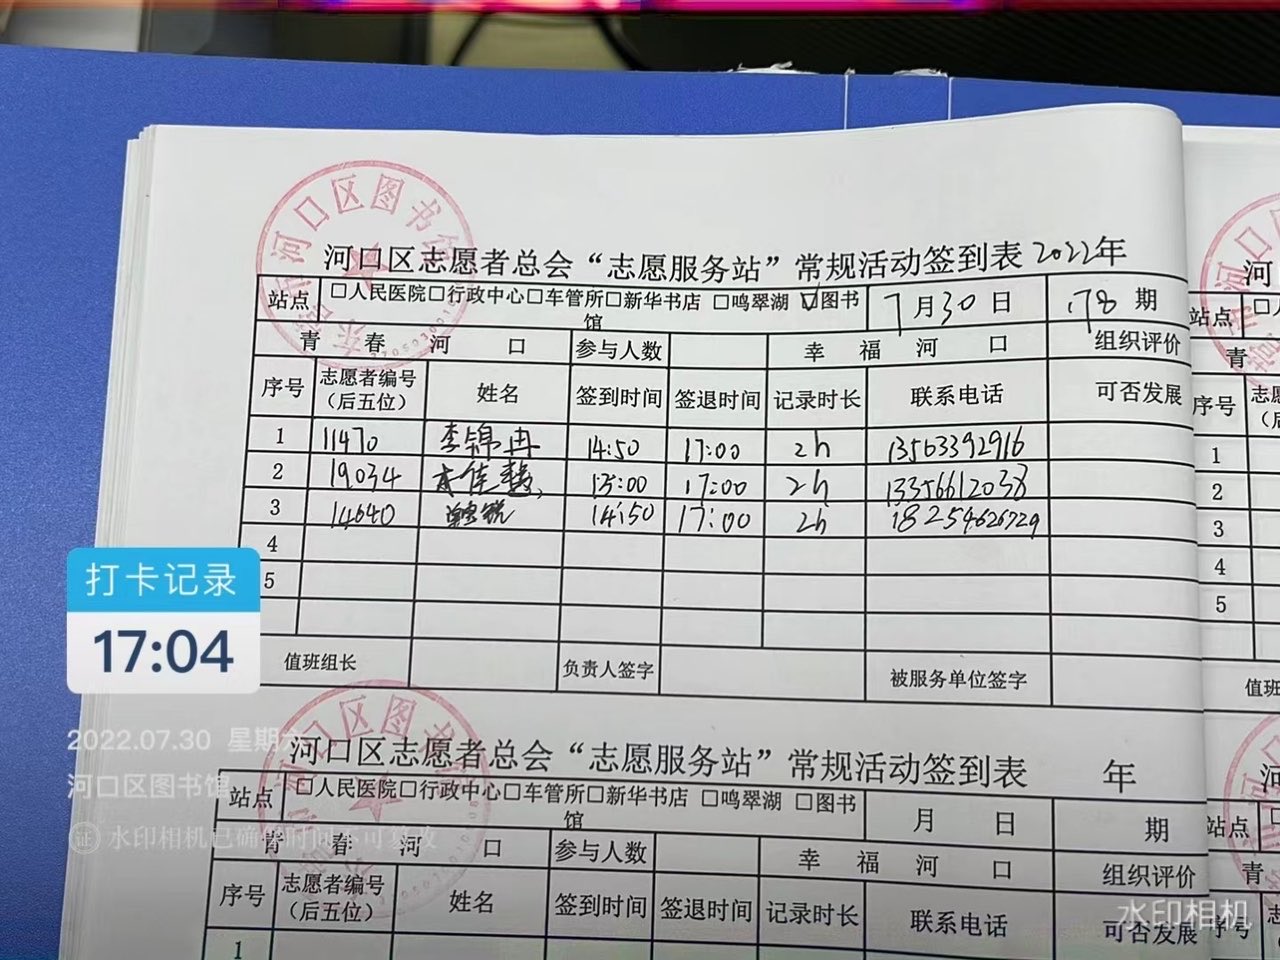 河口区志愿者总会“志愿服务站”常规活动签到表 2022年
站点 □人民医院□行政中心□车管所□新华书店 □鸣翠湖 ☑图书馆 7月30日 178期
青春河口 参与人数 幸福河口 组织评价
序号 志愿者编号（后五位） 姓名 签到时间 签退时间 记录时长 联系电话 可否发展
1 11470 李锦冉 14:50 17:00 2h 13563392916
2 19034 15:00 17:00 2h 13356612038
3 14640 14:50 17:00 2h 18254626729
4
5
值班组长 负责人签字 被服务单位签字
打卡记录
17:04
2022.07.30 星期六
河口区图书馆
水印相机已确保时间不可篡改
河口区志愿者总会“志愿服务站”常规活动签到表 年
站点 □人民医院□行政中心□车管所□新华书店 □鸣翠湖 □图书馆 月 日 期
青春河口 参与人数 幸福河口 组织评价
序号 志愿者编号（后五位） 姓名 签到时间 签退时间 记录时长 联系电话 可否发展
1
水印相机
河口区图书馆
河口区图书馆
河
站点
青
序号
1
2
3
4
5
站点
青
序号